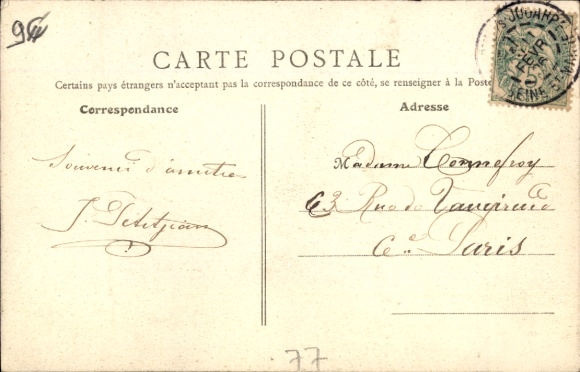 CARTE POSTALE
Certains pays étrangers n'acceptant pas la correspondance de ce côté, se renseigner à la Poste
Correspondance
Adresse
Souvenir d'amitié
J. Petitjean
Madame Connefroy
63 Rue de Vaugirard
Paris
77